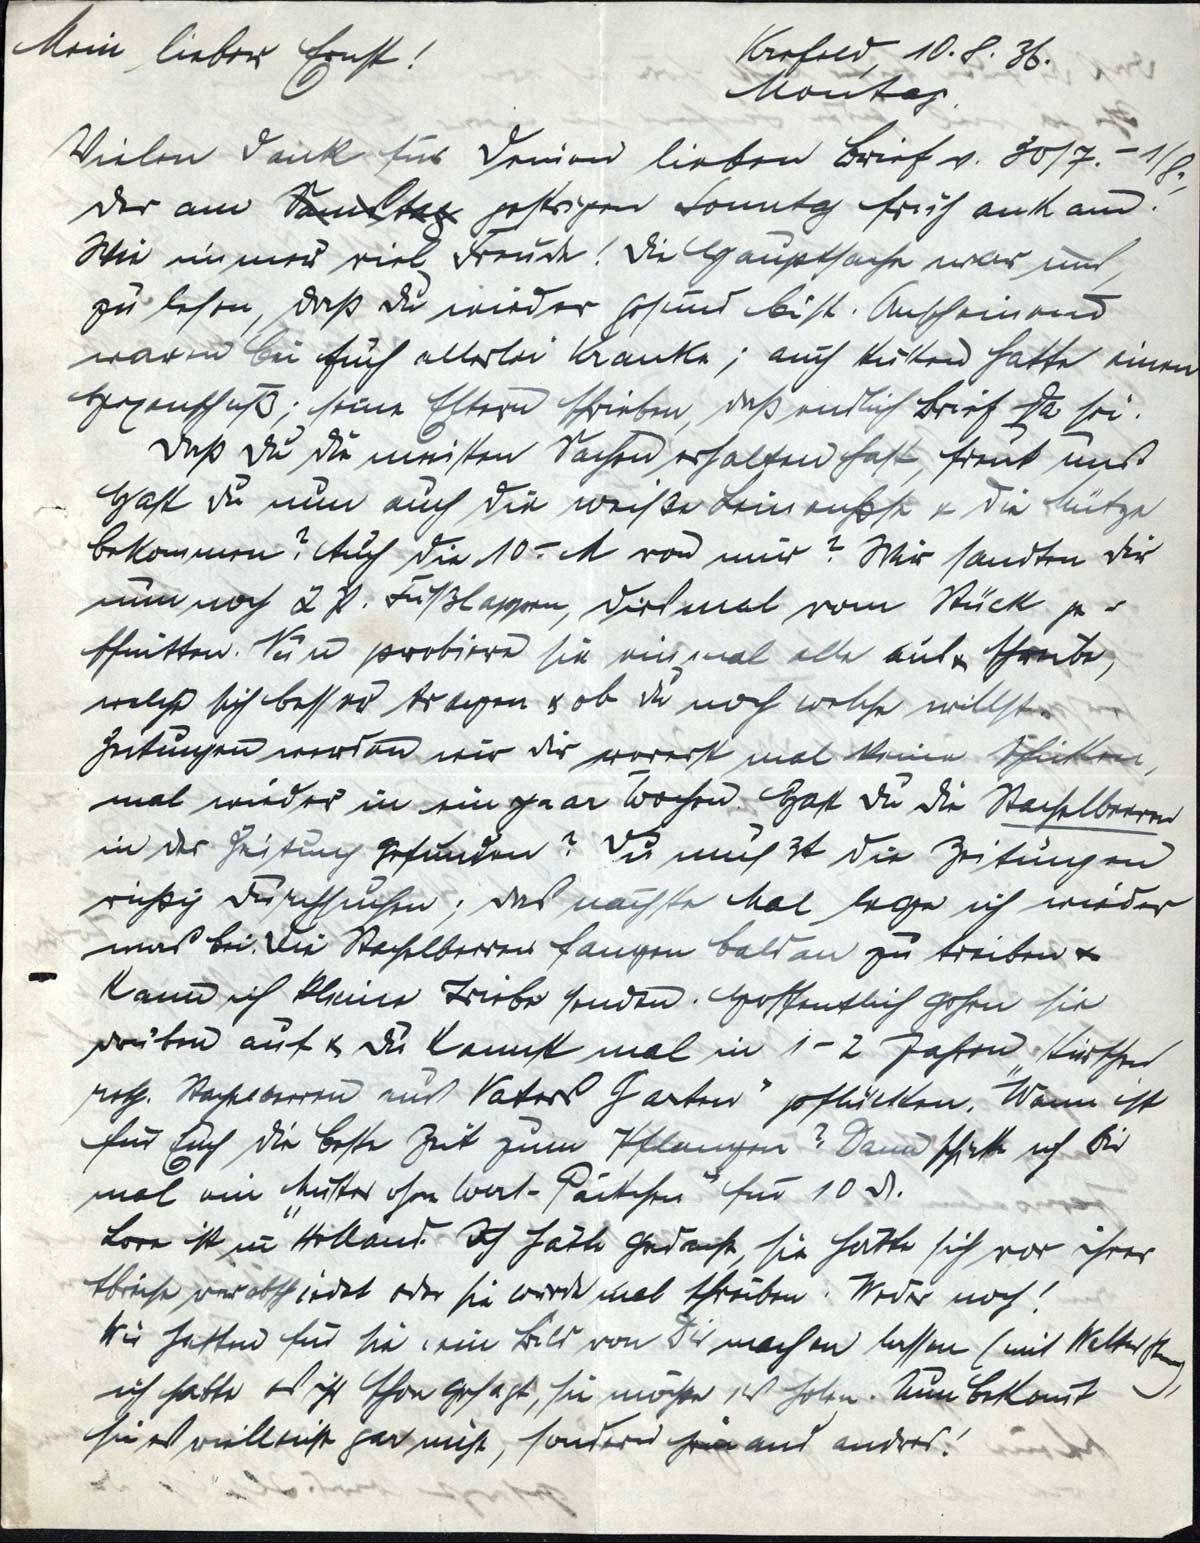 Mein lieber Ernst!
Krefeld, 10.8.36.
Montag.
Vielen Dank für Deinen lieben Brief v. 30/7.-1/8.,
der am Samstag gestrigen Sonntag früh ankam.
Wie immer viel Freude! Die Hauptsache war uns,
zu lesen, daß Du wieder gesund bist. Anscheinend
waren bei Euch allerlei Kranke; auch hatte einen
Hexenschuß; seine Eltern schrieben, daß endlich Brief da sei.
Daß Du die meisten Sachen erhalten hast, freut uns
Hast Du nun auch die weiße & die Mütze
bekommen? Auch die 10.-M von mir? Wir sandten Dir
nun noch 2 P. Fußlappen, diesmal vom Stück ge-
schnitten. Nun probiere sie einmal alle aus & schreibe,
welche sich besser tragen & ob Du noch welche willst.
Zeitungen werden wir Dir vorerst mal keine schicken,
mal wieder in ein paar Wochen. Hast Du die Stachelbeeren
in der Zeitung gefunden? Du mußt die Zeitungen
richtig durchsuchen; das nächste Mal lege ich wieder
was bei. Die Stachelbeeren fangen bald an zu treiben &
kann ich kleine Triebe senden. Hoffentlich gehen sie
drüben auf & Du kannst mal in 1-2 Jahren
Stachelbeeren aus Vaters Garten" pflücken. Wann ist
für Euch die beste Zeit zum Pflanzen? Dann schicke ich Dir
mal ein "Muster ohne Wert-Päckchen" für 10 d.
Lore ist in Holland. Ich hätte gedacht, sie hätte sich vor ihrer
Abreise verabschiedet oder sie würde mal schreiben. Weder noch!
Wir hatten für sie ein Bild von Dir machen lassen (mit Walter
ich hatte es ihr schon gesagt, sie möchte es holen. Nun bekomt
sie es vielleicht gar nicht, sondern jemand anders!